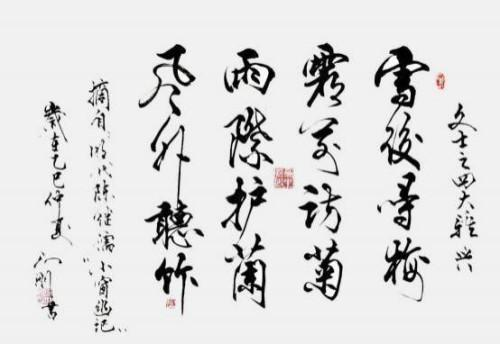 文士之四大雅兴
雪後尋梅
霜前訪菊
雨際护蘭
风外聽竹
摘自明代陈继儒"小窗幽记"
歲在乙巳仲夏
书